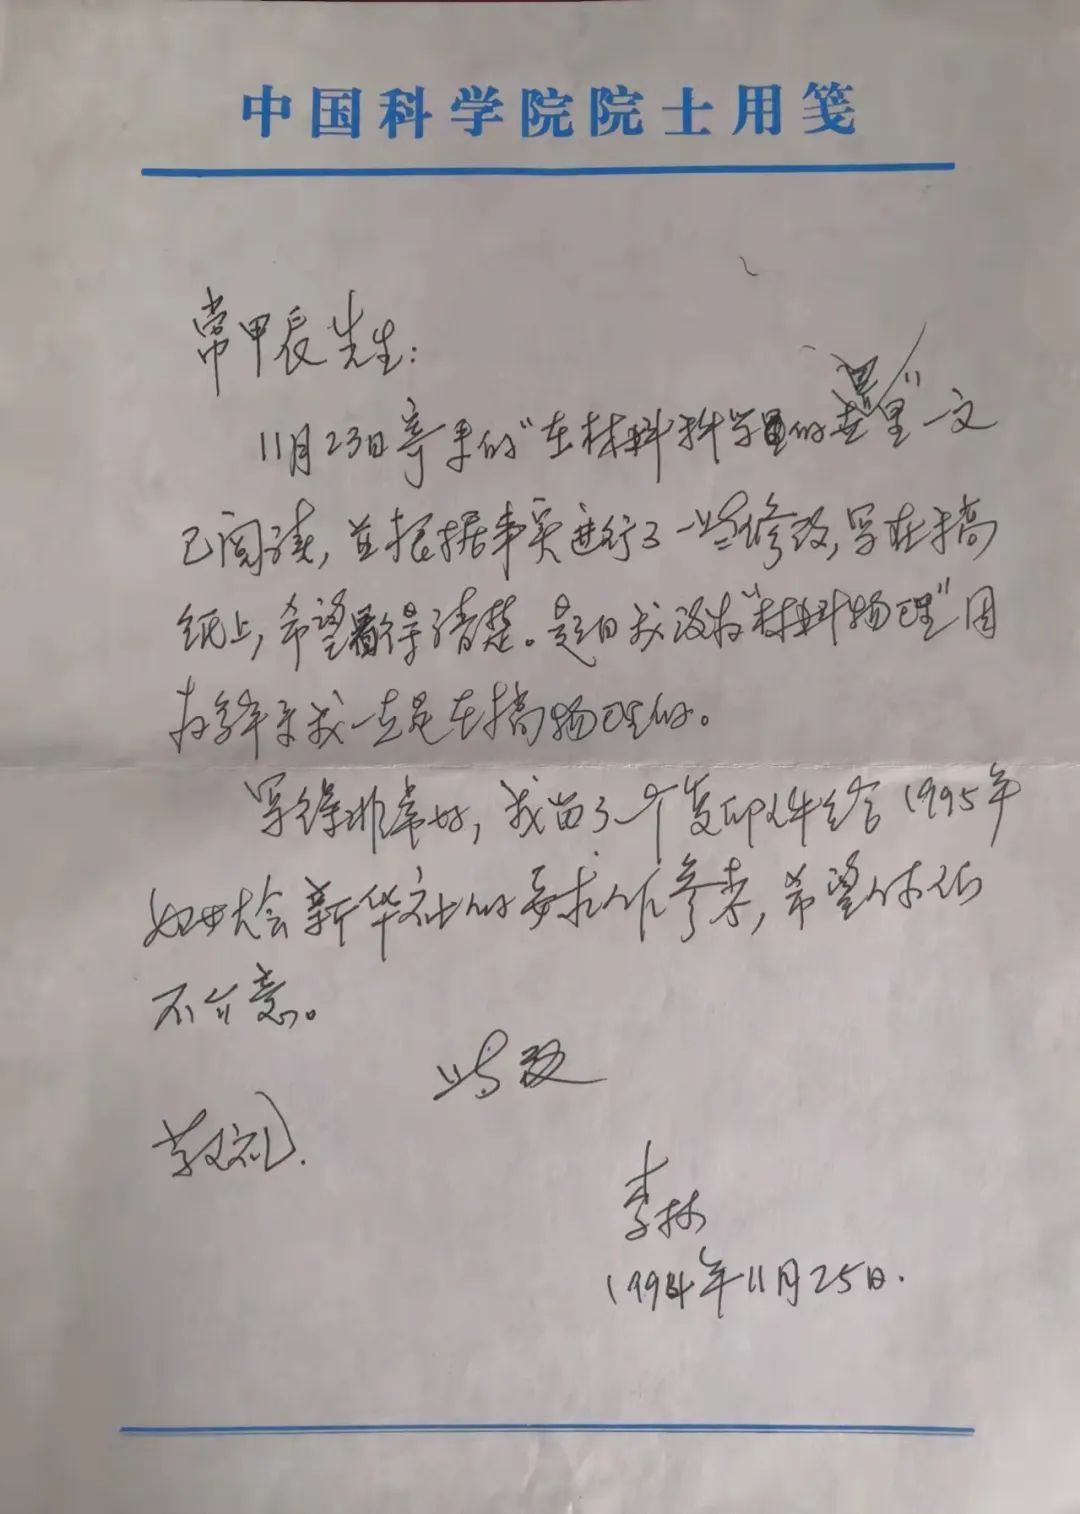 中国科学院院士用笺
常甲辰先生：
11月23日寄来的“在材料科学里的 里”一文
已阅读，并根据事实进行了一些修改，写在搞
纸上，希望看得清楚。题目我没 “材料物理”因
我一直是在搞物理的。
写得非常好，我留了一个复印件给1995年
妇女大会新华社的要求作参考，希望你们
不介意。
此致
敬礼.
李林
1994年11月25日.